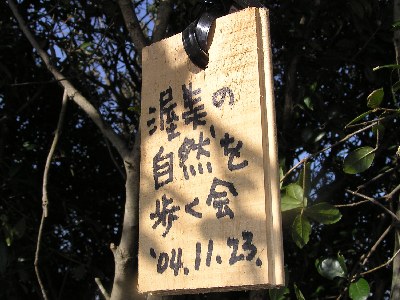 渥美の
自然を
歩く会
'04.11.23.